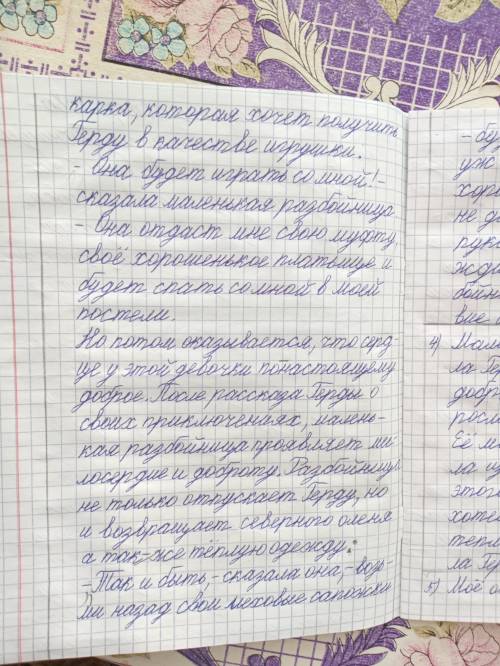 карка, которая хочет получить
Герду в качестве игрушки.
- Она будет играть со мной! -
сказала маленькая разбойница
- Она отдаст мне свою муфту,
своё хорошенькое платьице и
будет спать со мной в моей
постели.
Но потом оказывается, что серд-
це у этой девочки понастоящему
доброе. После рассказа Герды о
своих приключениях, малень-
кая разбойница проявляет ми-
лосердие и доброту. Разбойница
не только отпускает Герду, но
и возвращает северного оленя
а так-же тёплую одежду:
- Так и быть, - сказала она, - возь-
ми назад свои меховые сапожки
- бу
уж
хор
не д
рук
жд
бой
вие
4) Мал
ла Ге
добр
росл
Её м
ла из
этог
хоте
тепл
ла Ге
5) Моё о